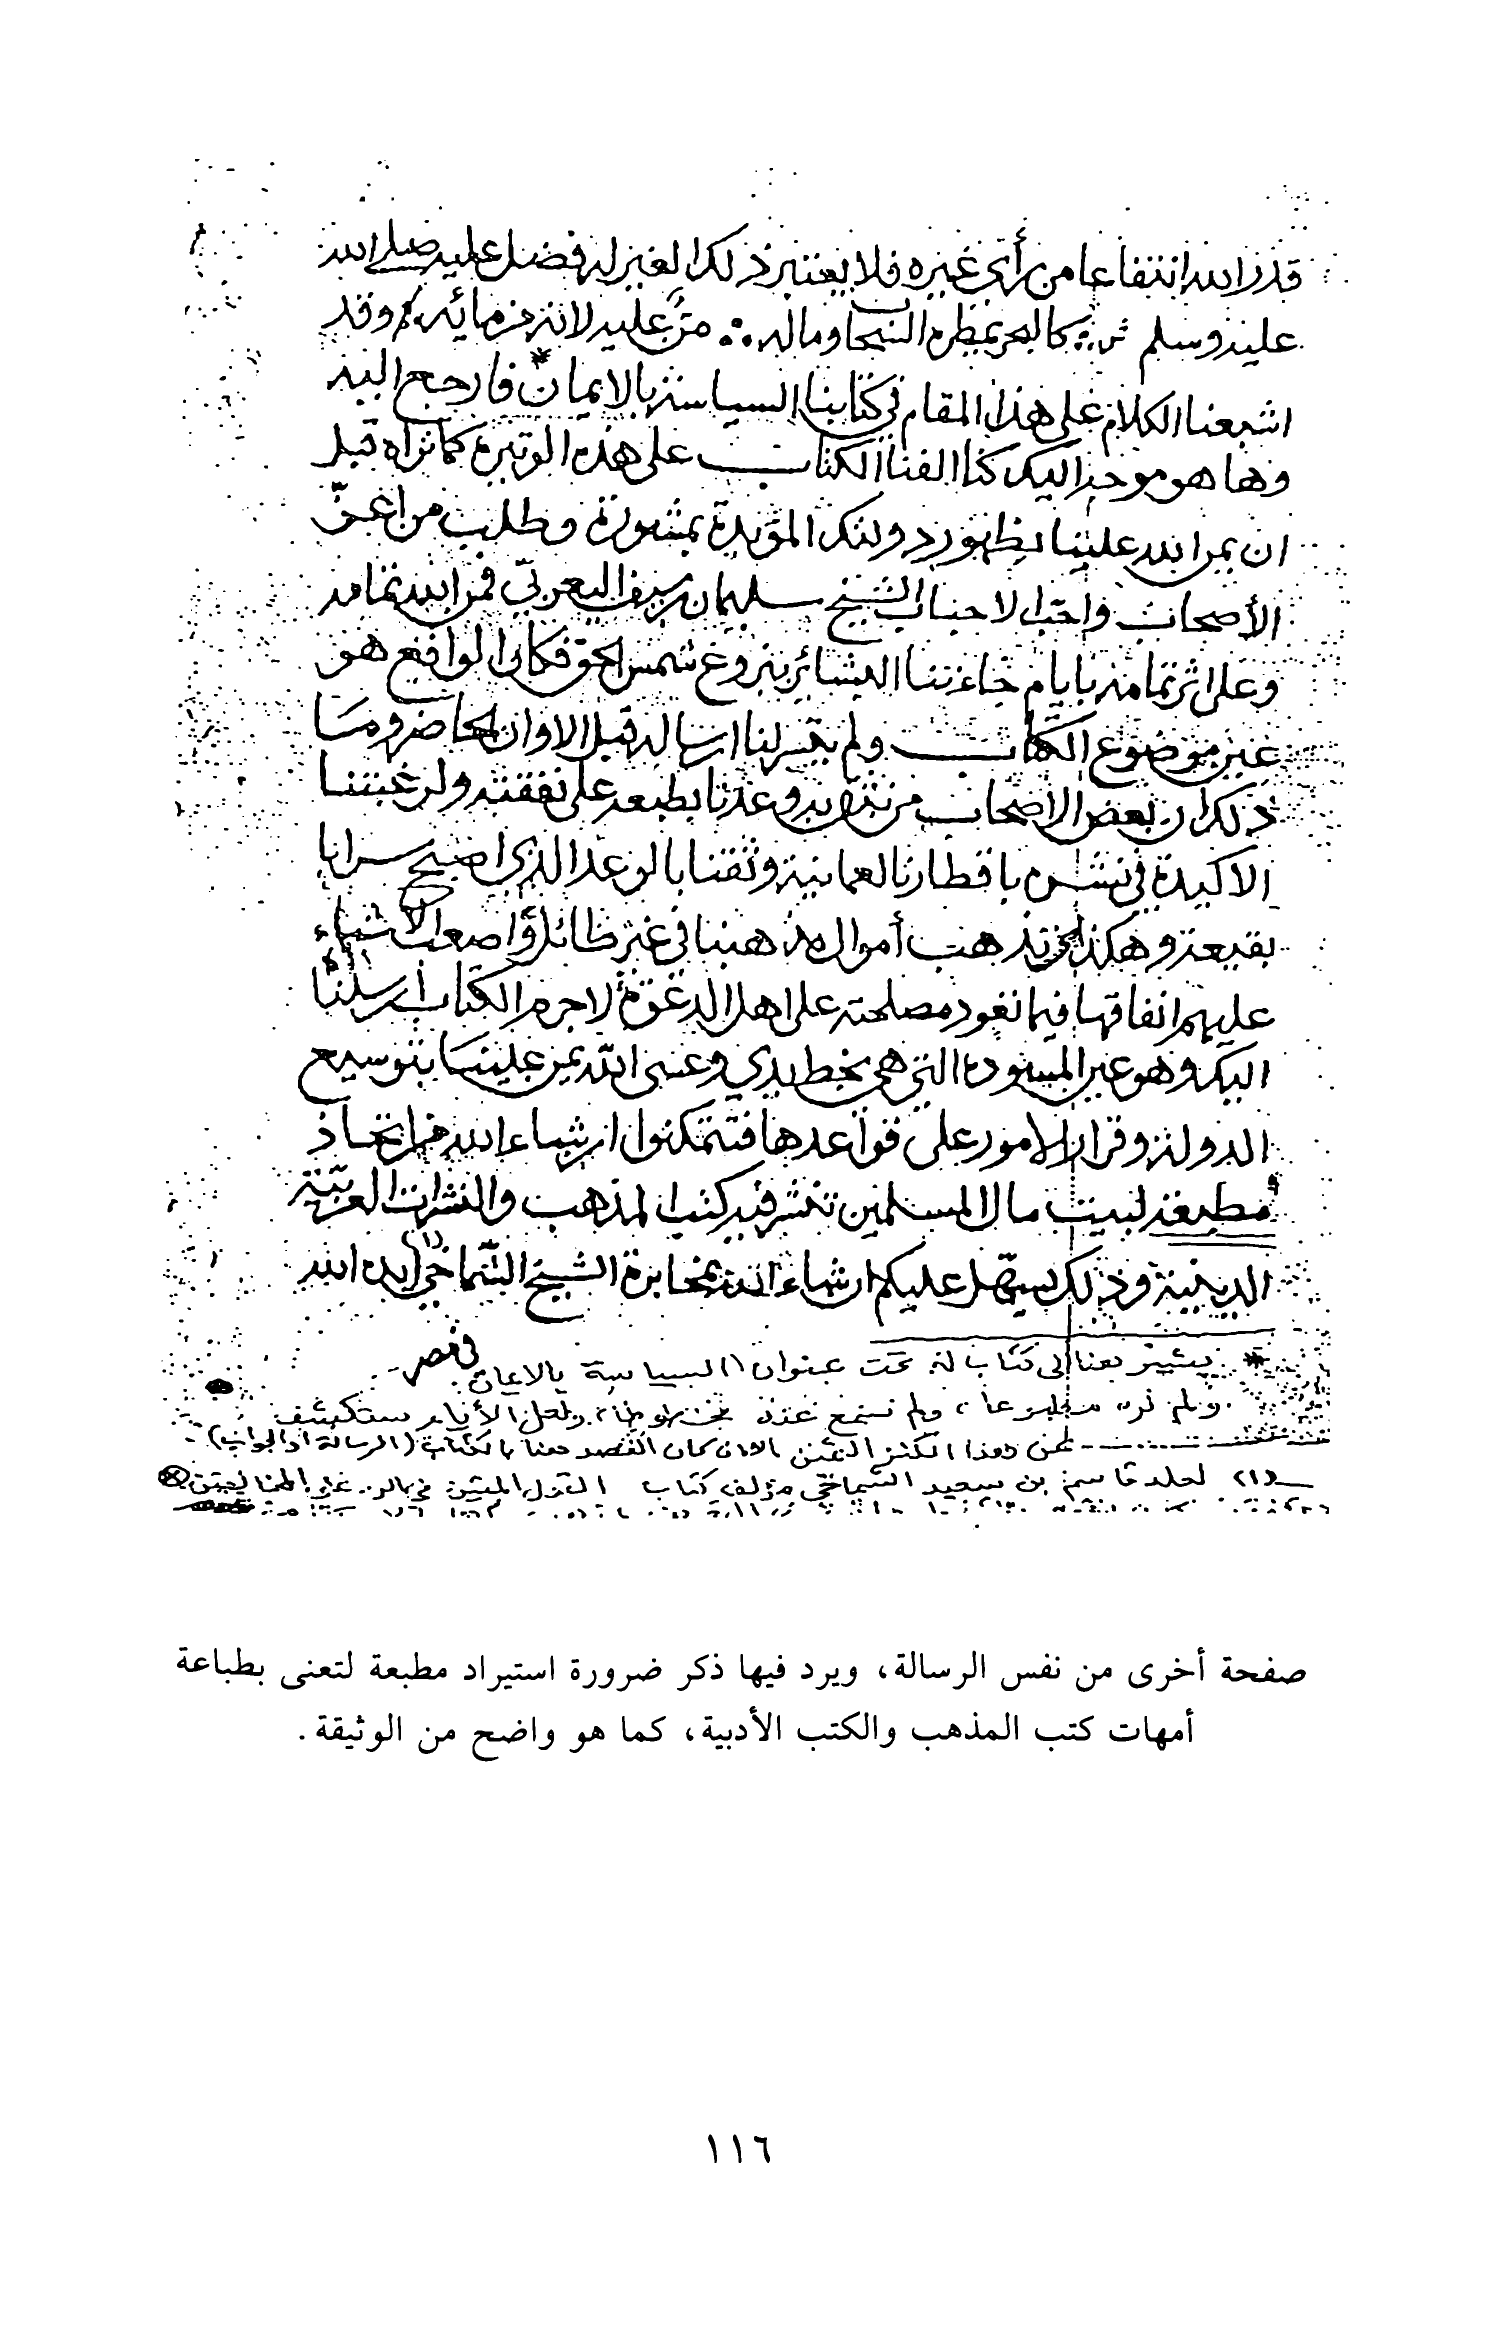 قدر الله انتفاعا من رأي غيره فلا يعتبر ذلك الغير له فضل عليه صلى الله
عليه وسلم كالبحر يمطره السحاب وماله ∴ منّ عليه لانه من مائه وقد
اشبعنا الكلام على هذا المقام في كتابنا السياسة بالايمان * فارجع اليه
وها هو موجه اليك كنا الفنا الكتاب على هذه الوتيرة كما تراه قبل
ان يمن الله علينا بظهور دولتك المؤيدة بمشورة وطلب من اعز
الأصحاب واحب الاحباب الشيخ سليمان بن سيف اليعربي فمن الله بتمامه
وعلى اثر تمامه بايام جاءتنا البشائر ببزوغ شمس الحق فكان الواقع هو
عين موضوع الكتاب ولم يتيسر لنا ارساله قبل الاوان الحاضر وما
ذلك ان بعض الاصحاب من نثق به وعدنا بطبعه على نفقته ولرغبتنا
الاكيدة في نشره باقطارنا العمانية وثقنا بالوعد الذي اصبح سرابا
بقيعة وهكذا تذهب أموال مذهبنا في غير طائل واصعب الاشياء
عليهم انفاقها فيما تعود مصلحته على اهل الدعوة لا جرم الكتاب ارسلنا
اليك وهو عين المسودة التي هي بخط يدي وعسى الله يمن علينا بتوسيع
الدولة وقرار الامور على قواعدها فتتمكنوا ان شاء الله من اتخاذ
مطبعة لبيت مال المسلمين تنشر فيه كتب المذهب والنشرات العربية
الدينية وذلك يسهل عليكم ان شاء الله بمخابرة الشيخ الشماخي (١) ايده الله
في مصر
* يشير هنا الى كتاب له تحت عنوان (السياسة بالايمان)
ولم نره مطبوعا، ولم نسمع عنه مخطوطا، ولعل الأيام ستكشف
عن هذا الكنز الثمين الا ان كان القصد هنا بالكتاب (الرسالة او الجواب)
(١) لعله قاسم بن سعيد الشماخي مؤلف كتاب القول المتين في الرد على المخالفين
صفحة أخرى من نفس الرسالة، ويرد فيها ذكر ضرورة استيراد مطبعة لتعنى بطباعة
أمهات كتب المذهب والكتب الأدبية، كما هو واضح من الوثيقة.
١١٦